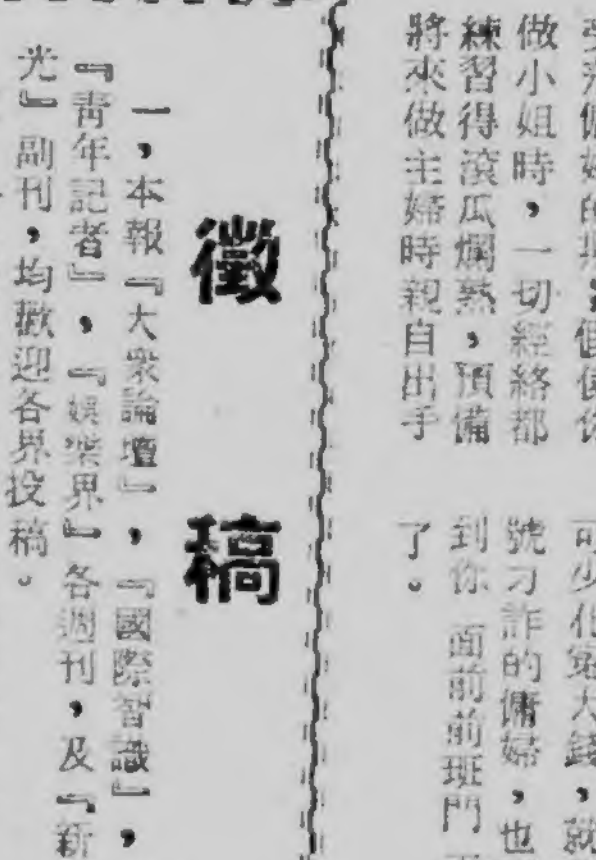 做小姐時，一切經絡都
練習得滾瓜爛熟，預備
將來做主婦時親自出手
號刁詐的傭婦，也
到你 面前前班門
了。
徵稿
一，本報『大衆論壇』，『國際智識』，
『靑年記者』，『娛樂界』各週刊，及『新
光』副刊，均歡迎各界投稿。